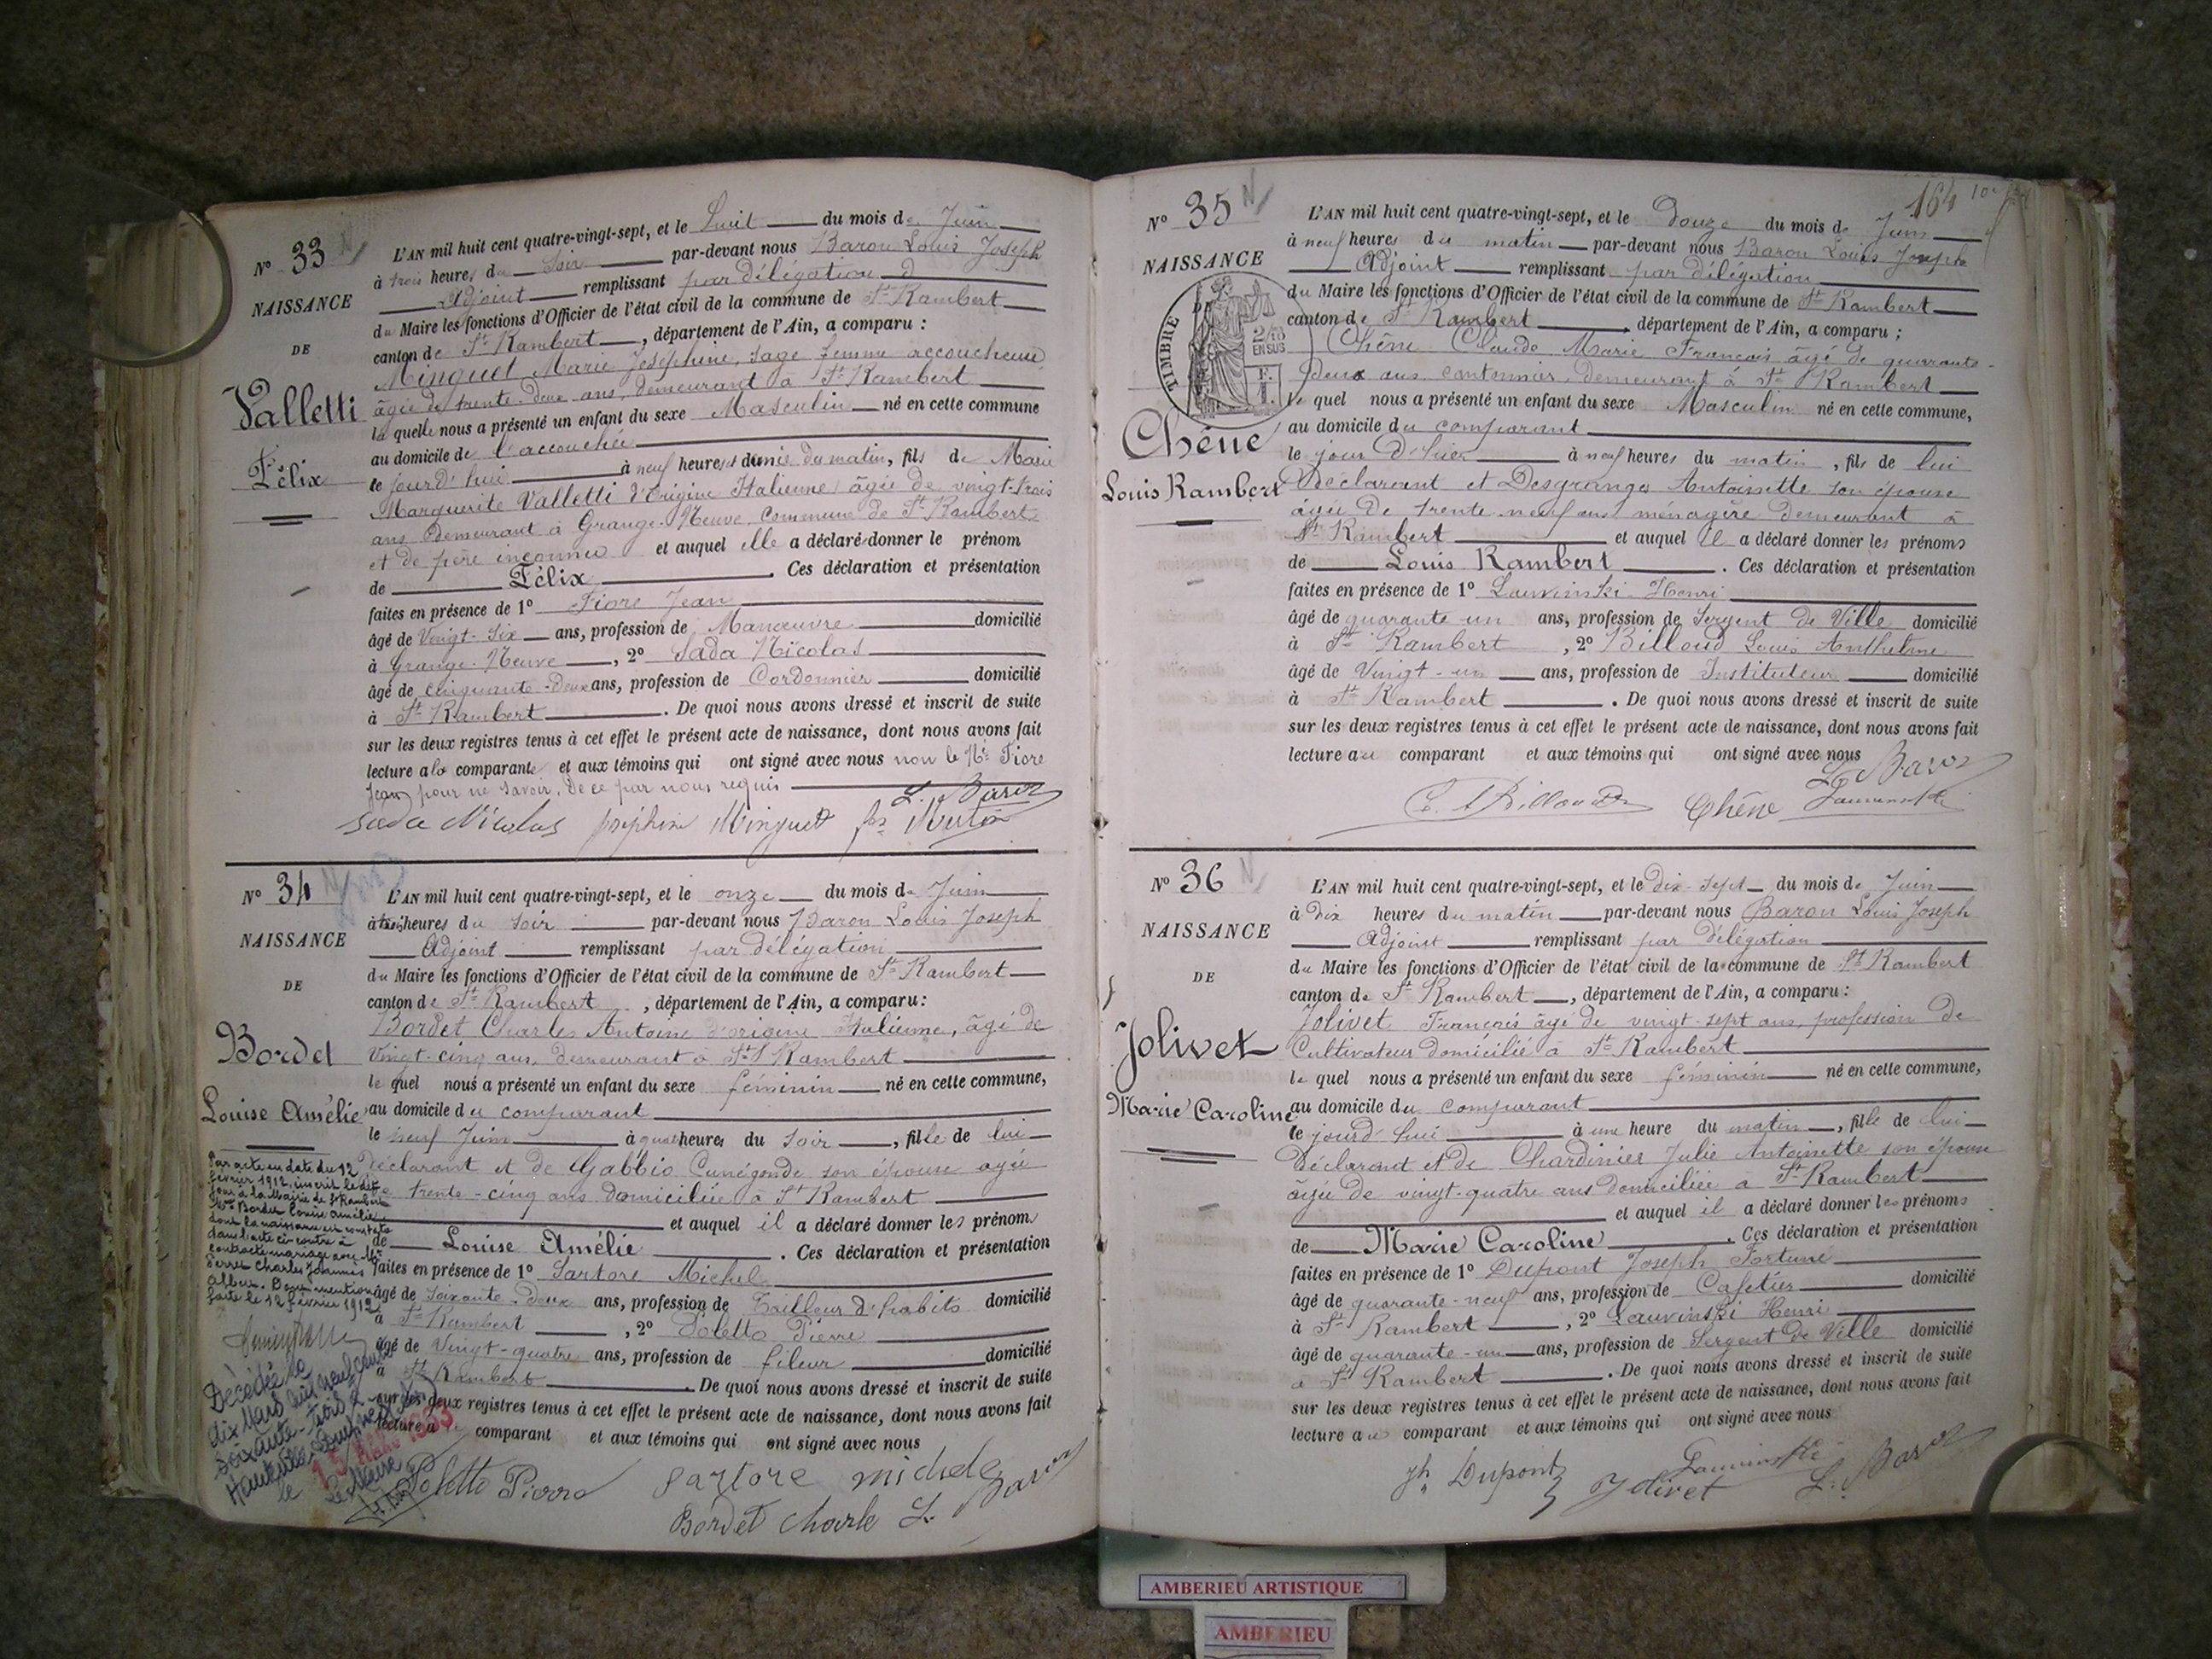 N° 33
NAISSANCE
DE
Valletti
Félix
L'AN mil huit cent quatre-vingt-sept, et le huit du mois de Juin
à trois heures du soir par-devant nous Baron Louis Joseph
Adjoint remplissant par délégation d
du Maire les fonctions d'Officier de l'état civil de la commune de St Rambert
canton de St Rambert, département de l'Ain, a comparu :
Minguet Marie Joséphine, sage femme accoucheuse
âgée de trente-deux ans, demeurant à St Rambert
la quelle nous a présenté un enfant du sexe Masculin né en cette commune
au domicile de l'accouchée
le jourd'hui à neuf heures et demie du matin, fils de Marie
Marguerite Valletti d'Origine Italienne, âgée de vingt-trois
ans demeurant à Grange-Neuve, commune de St Rambert
et de père inconnu et auquel elle a déclaré donner le prénom
de Félix. Ces déclaration et présentation
faites en présence de 1° Fiore Jean
âgé de Vingt-six ans, profession de Manœuvre domicilié
à Grange-Neuve, 2° Sada Nicolas
âgé de cinquante-deux ans, profession de Cordonnier domicilié
à St Rambert. De quoi nous avons dressé et inscrit de suite
sur les deux registres tenus à cet effet le présent acte de naissance, dont nous avons fait
lecture à la comparante et aux témoins qui ont signé avec nous non le Né Fiore
Jean pour ne savoir, de ce par nous requis
L. Baron
Sada Nicolas Joséphine Minguet
N° 34
NAISSANCE
DE
Bordet
Louise Amélie
L'AN mil huit cent quatre-vingt-sept, et le onze du mois de Juin
à trois heures du soir par-devant nous Baron Louis Joseph
Adjoint remplissant par délégation
du Maire les fonctions d'Officier de l'état civil de la commune de St Rambert
canton de St Rambert, département de l'Ain, a comparu :
Bordet Charles Antoine d'origine Italienne, âgé de
Vingt-cinq ans, demeurant à St Rambert
le quel nous a présenté un enfant du sexe féminin né en cette commune,
au domicile du comparant
le neuf Juin à quatre heures du soir, fille de lui
déclarant et de Gabbio Cunégonde son épouse agée
de trente-cinq ans domiciliée à St Rambert
et auquel il a déclaré donner les prénoms
de Louise Amélie. Ces déclaration et présentation
faites en présence de 1° Sartore Michel
âgé de soixante-deux ans, profession de Tailleur d'habits domicilié
à St Rambert, 2° Poletto Pierre
âgé de Vingt-quatre ans, profession de fileur domicilié
à St Rambert. De quoi nous avons dressé et inscrit de suite
sur les deux registres tenus à cet effet le présent acte de naissance, dont nous avons fait
lecture au comparant et aux témoins qui ont signé avec nous
Poletto Pierre Sartore michele
Bordet Charle L. Baron
Par acte en date du 12
février 1912, inscrit le dit
jour à la Mairie de St Rambert
Mlle Bordet Louise Amélie
dont la naissance est constatée
dans l'acte ci-contre à
contracté mariage avec Mr
Perret Charles Johannès
Albert. Dont mention
faite le 12 février 1912
Décédée le
dix Mars mil neuf cent
soixante-trois à
Hauteville-Lompnes (Ain)
le 13 1963
Le Maire
N° 35
NAISSANCE
DE
TIMBRE
2/10
EN SUS
Chêne
Louis Rambert
164
L'AN mil huit cent quatre-vingt-sept, et le douze du mois de Juin
à neuf heures du matin par-devant nous Baron Louis Joseph
Adjoint remplissant par délégation
du Maire les fonctions d'Officier de l'état civil de la commune de St Rambert
canton de St Rambert, département de l'Ain, a comparu ;
Chêne Claude Marie François âgé de quarante-
deux ans cantonnier, demeurant à St Rambert
le quel nous a présenté un enfant du sexe Masculin né en cette commune,
au domicile du comparant
le jour d'hier à neuf heures du matin, fils de lui
déclarant et Desgranges Antoinette son épouse
âgée de trente-neuf ans ménagère demeurant à
St Rambert et auquel il a déclaré donner les prénoms
de Louis Rambert. Ces déclaration et présentation
faites en présence de 1° Lauvinski Henri
âgé de quarante un ans, profession de Sergent de Ville domicilié
à St Rambert, 2° Billoud Louis Anthelme
âgé de Vingt-un ans, profession de Instituteur domicilié
à St Rambert. De quoi nous avons dressé et inscrit de suite
sur les deux registres tenus à cet effet le présent acte de naissance, dont nous avons fait
lecture au comparant et aux témoins qui ont signé avec nous
L. Baron
Billoud Chêne Lauvinski
N° 36
NAISSANCE
DE
Jolivet
Marie Caroline
L'AN mil huit cent quatre-vingt-sept, et le dix-sept du mois de Juin
à dix heures du matin par-devant nous Baron Louis Joseph
Adjoint remplissant par délégation
du Maire les fonctions d'Officier de l'état civil de la commune de St Rambert
canton de St Rambert, département de l'Ain, a comparu :
Jolivet François âgé de vingt-sept ans, profession de
Cultivateur domicilié à St Rambert
le quel nous a présenté un enfant du sexe féminin né en cette commune,
au domicile du comparant
le jourd'hui à une heure du matin, fille de lui
déclarant et de Chardinier Julie Antoinette son épouse
âgée de vingt-quatre ans domiciliée à St Rambert
et auquel il a déclaré donner les prénoms
de Marie Caroline. Ces déclaration et présentation
faites en présence de 1° Dupont Joseph Fortuné
âgé de quarante-neuf ans, profession de Cafetier domicilié
à St Rambert, 2° Lauvinski Henri
âgé de quarante-un ans, profession de Sergent de Ville domicilié
à St Rambert. De quoi nous avons dressé et inscrit de suite
sur les deux registres tenus à cet effet le présent acte de naissance, dont nous avons fait
lecture au comparant et aux témoins qui ont signé avec nous
Jh Dupont Jolivet Lauvinski L. Baron
AMBERIEU ARTISTIQUE
AMBERIEU